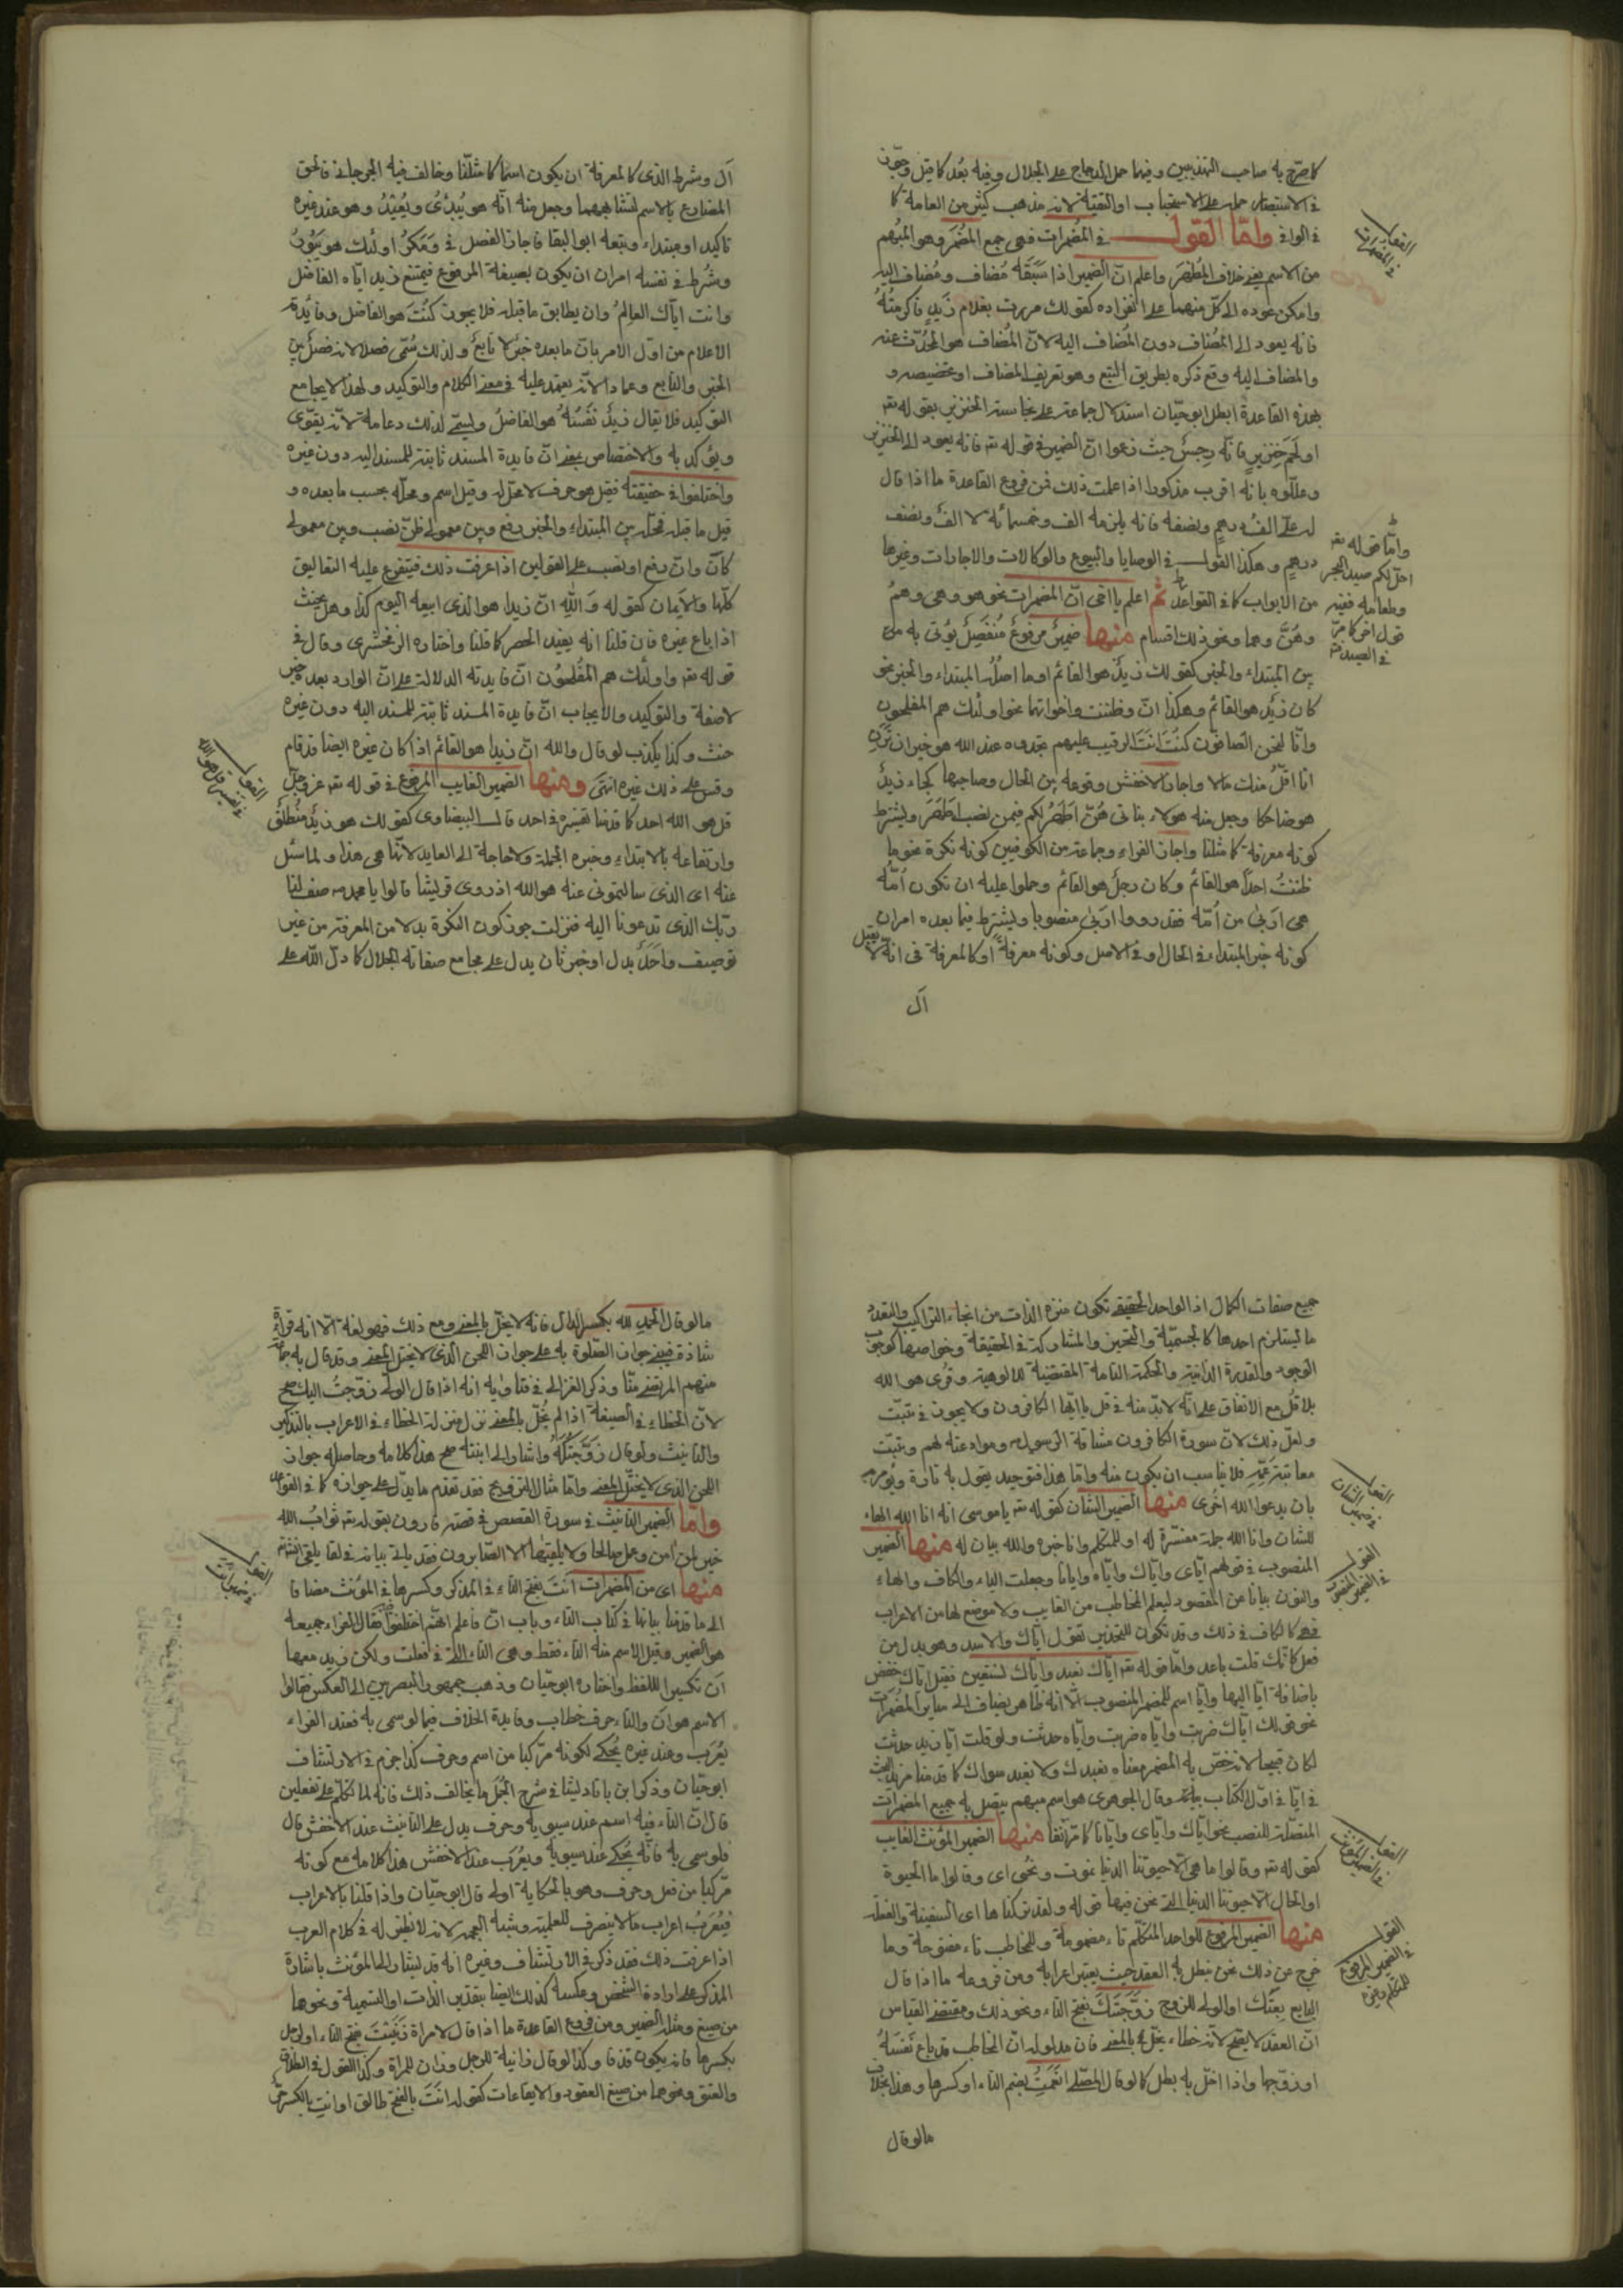 كما صرّح به صاحب التهذيبين وفيما حمل الدجاج على الجلال وفيه بُعد كما قيل وجوّز
في الاستبصار حمله على الاستحباب او التقية لانه مذهب كثير من العامة كما
في الوافي واما القول في المضمرات فهى جمع المُضمَر وهو المبهم
من الاسم يعنى خلاف المُظهَر واعلم انّ الضمير اذا سَبَقَهُ مُضاف ومُضاف اليه
وامكن عوده الى كلّ منهما على انفراده كقولك مررت بغلام زيدٍ فاكرمتُهُ
فانه يعود الى المُضاف دون المُضاف اليه لانّ المُضاف هو المُحدّث عنه
والمضاف اليه وقع ذكره بطريق التبع وهو تعريف المضاف او تخصيصه و
بهذه القاعدة ابطل ابو حيّان استدلال جماعة على نجاسة الخنزير بقوله تع
او لَحمَ خِنزيرٍ فانّه رِجسٌ حيث زعموا انّ الضمير في قوله تع فانه يعود الى الخنزير
وعلّلوه بانه اقرب مذكور اذا علمت ذلك فمن فروع القاعدة ما اذا قال
له علىّ الفُ درهمٍ ونصفه فانه يلزمه الف وخمسمائة لا الفٌ ونصف
درهمٍ وهكذا القول في الوصايا والبيوع والوكالات والاجارات وغيرها
من الابواب كما في القواعد ثم اعلم يا اخى انّ المضمرات نحو هو وهى وهُم
وهُنَّ وهما ونحو ذلك اقسام منها ضميرٌ مرفوعٌ مُنفَصِلٌ يؤتى به
بين المبتداء والخبر كقولك زيدٌ هو القائم او ما اصلُه المبتداء والخبر نحو
كان زيدٌ هو القائم وهكذا انّ وظننت واخواتها نحو اولئك هم المفلحون
وانّا لنحن الصافّون كنتَ انتَ الرقيب عليهم تجدوه عند الله هو خيرا ان تَرَنِ
انا اقلَّ منك مالا واجاز الاخفش وقوعه بين الحال وصاحبها كجاء زيدٌ
هو ضاحكا وجعل منه هؤلاء بناتى هُنّ اَطهَرُ لكم فيمن نصب اَطهَرَ ويشترط
كونه معرفة كما مثلنا واجاز الفراء وجماعة من الكوفيين كونه نكرة نحو ما
ظننتُ احداً هو القائم وكان رجلٌ هو القائم وحملوا عليه ان تكون اُمّة
هى اَربى من اُمّة فقدروا اربى منصوبا ويشترط فيما بعده امران
كونه خبر المبتداء في الحال او في الاصل وكونه معرفةً او كالمعرفة في انه لا يقبل
ال
القول في المضمرات
وامّا قوله تع
احلّ لكم صيد البحر
وطعامه ففيه
قول اخر كما مرّ
في الصيد
اَل وشرط الذى كالمعرفة ان يكون اسما كما مثلنا وخالف فيه الجرجاني فالحق
المضارع بالاسم لتشابههما وجعل منه انّه هو يُبدئُ ويُعيدُ وهو عند غيره
تاكيد او مبتداء وتبعه ابو البقا فاجاز الفصل في ومَكرُ اولئك هو يَبُورُ
وشُرط في نفسه امران ان يكون بصيغة المرفوع فيمتنع زيد ايّاه الفاضل
وانت ايّاك العالِمُ وان يطابق ما قبله فلا يجوز كُنتَ هو الفاضل وفائدة
الاعلام من اوّل الامر بانّ ما بعده خبرٌ لا تابعٌ ولذلك سُمّى فصلا لانه فصل بين
الخبر والتابع وعمادا لانّه يعتمد عليه في معنى الكلام والتوكيد ولهذا لا يجامع
التوكيد فلا يقال زيدٌ نَفسُهُ هو الفاضلُ وليسمّى لذلك دعامة لانه يقوّى
ويؤكد به والاختصاص بمعنى انّ فايدة المسند ثابتة للمسند اليه دون غيره
واختلفوا في حقيقته فقيل هو حرف لا محلّ له وقيل اسم ومحلّه بحسب ما بعده و
قيل ما قبله فمحلّه بين المبتداء والخبر رفع وبين معمولى ظنّ نصب وبين معمولى
كانّ وانّ رفع او نصب على القولين اذا عرفت ذلك فيتفرع عليه التعاليق
كلّها والاَيمان كقوله وَاللهِ انّ زيدا هو الذى ابيعه اليوم كذا وهل يحنث
اذا باع غيره فان قلنا انه يفيد الحصر كما قلنا واختاره الزمخشرى وقال في
قوله تع واولئك هم المُفلحون انّ فايدته الدلالة على انّ الوارد بعده خبر
لا صفة والتوكيد والايجاب انّ فايدة المسند ثابتة للمسند اليه دون غيره
حنث وكذا يكذب لو قال والله انّ زيدا هو القائم اذا كان غيره ايضا قد قام
وقس على ذلك غيره انتهى ومنها الضمير الغايب المرفوع في قوله تع عز وجلّ
قل هو الله احد كما قدمنا تفسيره في احد قال البيضاوى كقولك هو زيدٌ مُنطلِقٌ
وارتفاعه بالابتداء وخبره الجملة ولا حاجة الى العايد لانّها هى هذا ولما سُئل
عنه اى الذى سالتمونى عنه هو الله اذ روى قريشا قالوا يا محمد صف لنا
ربّك الذى تدعونا اليه فنزلت جوز كون النكرة بدلا من المعرفة من غير
توصيف واَحَدٌ بدل او خبر ثان يدل على مجامع صفاته الجلال كما دلّ الله على
القول في تفسير قل هو الله
جميع صفات الكمال اذ الواحد الحقيقى تكون منزه الذات من انحاء التراكيب والتعدد
ما يستلزم احدها كالجسميّة والتحيز والمشاركة في الحقيقة وخواصها كوجوب
الوجود والقدرة الذاتية والحكمة التامة المقتضية للالوهية وقُرى هو الله
بلا قُل مع الاتفاق على انّه لابدّ منه في قل يا ايّها الكافرون ولا يجوز في تبّت
ولعل ذلك لانّ سورة الكافرون مشاقّة الرسول وموادعته لهم وتبّت
معاتبة عَمِّهِ فلا يناسب ان يكون منه وامّا هذا فتوحيد يقول به تارة ويُؤمر
بان يدعوا الله اخرى منها الضمير الشان كقوله تع يا موسى انه انا الله الهاء
للشان وانا الله جملة مفسّرة له او للمتكلم وانا خبره والله بيان له منها الضمير
المنصوب في قولهم ايّاى وايّاك وايّاه وايانا وجعلت الياء والكاف والهاء
والنون بيانا عن المقصود ليعلم المخاطب من الغايب ولا موضع لها من الاعراب
فهى كالكاف في ذلك وقد تكون للتحذير تقول ايّاك والاسد وهو بدل من
فعل كانّك قلت باعد وامّا قوله تع ايّاك نعبد وايّاك نستعين فقيل ايّاك خفض
باضافة ايّا اليها وايّا اسم للمضمر المنصوب الّا انه ظاهر يضاف الى ساير المُضمرات
نحو قولك ايّاك ضربت وايّاه ضربت وايّاه حدثت ولو قلت ايّا زيد حدثت
لكان قبيحا لانه خصّ به المضمر معناه نعبدك ولا نعبد سواك كما قدمنا مزيد البحث
في ايّا في اوّل الكتاب بيانه وقال الجوهرى هو اسم مبهم يتصل به جميع المضمرات
المتصلة للنصب نحو ايّاك وايّاى وايّانا كما مرّ آنفا منها الضمير المؤنث الغايب
كقوله تع وقالوا ما هى الّا حيوتنا الدنيا نموت ونحى اى وقالوا ما الحيوة
او الحال الّا حيوتنا الدنيا التى نحن فيها قوله ولقد تركناها اى السفينة والفعلة
منها الضمير المرفوع للواحد المتكلّم تاء مضمومة وللمخاطب تاء مفتوحة وما
خرج عن ذلك نحن نبطل به العقد حيث يعتبر اعرابه ومن فروعه ما اذا قال
البايع بِعتَكَ او الولى للزوج زوّجتَكَ بفتح التاء ونحو ذلك ومقتضى القياس
انّ العقد لا يصحّ لانه خطاء يخلّ بالمعنى فان مدلوله انّ المخاطب قد باع نَفسَهُ
او زوّجها واذا اخلّ به بطل كما لو قال المصلّى انعمتُ بضم التاء او كسرها وهذا بخلاف
ما لو قال
القول في ضمير الشان
القول في الضمير المنصوب
القول في الضمير المؤنث
القول في الضمير المرفوع للمتكلم وغيره
ما لو قال الحمدِ لله بكسر الدال فانه لا يخلّ بالمعنى ومع ذلك فهو لغة الّا انه قراءة
شاذة فينبغى جواز الصّلوة به على جواز اللحن الذى لا يختل المعنى وقد قال به جماعة
منهم المرتضى منّا وذكر الغزالى في فتاويه انه اذا قال الولىّ زوّجتُ اليك صح
لانّ الخطاء في الصيغة اذا لم يُخلّ بالمعنى نزل منزلة الخطاء في الاعراب بالتذكير
والتانيث ولو قال زَوَّجتُكَهُ واشار الى ابنته صح هذا كلامه وحاصله جواز
اللحن الذى لا يختلّ المعنى وامّا مثال التزويج فقد تقدم ما يدّل على جوازه كما في القواعد
وامّا الضمير التانيث في سورة القصص في قصة قارون بقوله تع ثوابُ الله
خيرٌ لمن آمن وعمل صالحا ولا يلقيّها الا الصّابرون فقد ياتى بيانه في لقا يلقى انشاء
منها اى من المضمرات اَنتَ بفتح التاء في المذكر وكسرها في المؤنث مضافا
الى ما قدمنا بيانها في كتاب التاء وباب انّ فاعلم انّهم اختلفوا فقال الفراء جميعه
هو الضمير وقيل الاسم منه التاء فقط وهى التاء التى في فعلت ولكن زيد معها
اَن تكسيرا لللفظ واختاره ابو حيّان وذهب جمهور البصريين الى العكس فقالوا
الاسم هو ان والتاء حرف خطاب وفايدة الخلاف فيما لو سمى به فعند الفراء
يُعرَب وعند غيره يُحكى لكونه مركّبا من اسم وحرف كذا جزم في الارتشاف
ابو حيّان وذكر ابن بابشاذ ايضا في شرح الجُمَل ما يخالف ذلك فانه لما تكلم على تفعلين
قال انّ التاء فيه اسم عند سيبويه وحرف يدل على التانيث عند الاخفش قال
فلو سمى به فانّه يُحكى عند سيبويه ويُعرَب عند الاخفش هذا كلامه مع كونه
مركّبا من فعل وحرف وهو بالحكاية اولى قال ابو حيّان واذا قلنا بالاعراب
فيُعرَبُ اعراب ما لا ينصرف للعلمية وشبه العجمة لانه لا نظير له في كلام العرب
اذا عرفت ذلك فقد ذكر في الارتشاف وغيره انه قد يشار الى المؤنث باشارة
المذكر على ارادة الشخص وعكسه كذلك ايضا بتقدير الذات او التسمية ونحوها
من صيغ ومثله الضمير ومن فروع القاعدة ما اذا قال لامراة زَنَيتَ بفتح التاء او لرجل
بكسرها فانه يكون قذفا وكذا لو قال زانية للرجل وزان للمراة وكذا القول في الطلاق
والعتق ونحوهما من صيغ العقود والايقاعات كقوله انتَ بالفتح طالق او انتِ بالكسر حرٌّ